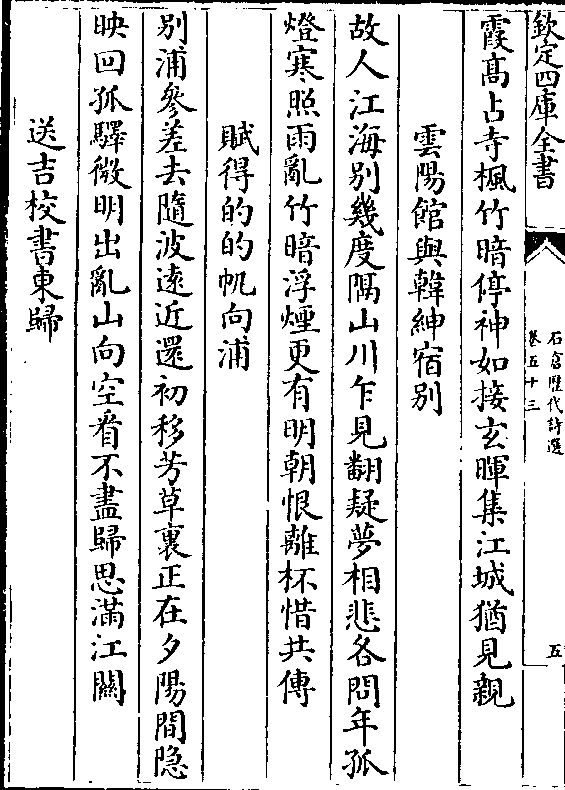 欽定四庫全書
石倉歷代詩選
卷五十三
五
霞髙占寺楓竹暗停神如接玄暉集江城猶見親
雲陽館與韓紳宿别
故人江海别幾度隔山川乍見翻疑夢相悲各問年孤
燈寒照雨亂竹暗浮煙更有明朝恨離杯惜共傳
賦得的的帆向浦
别浦參差去隨波逺近還初移芳草裏正在夕陽間隐
映回孤驛微明出亂山向空看不盡歸思滿江關
送吉校書東歸